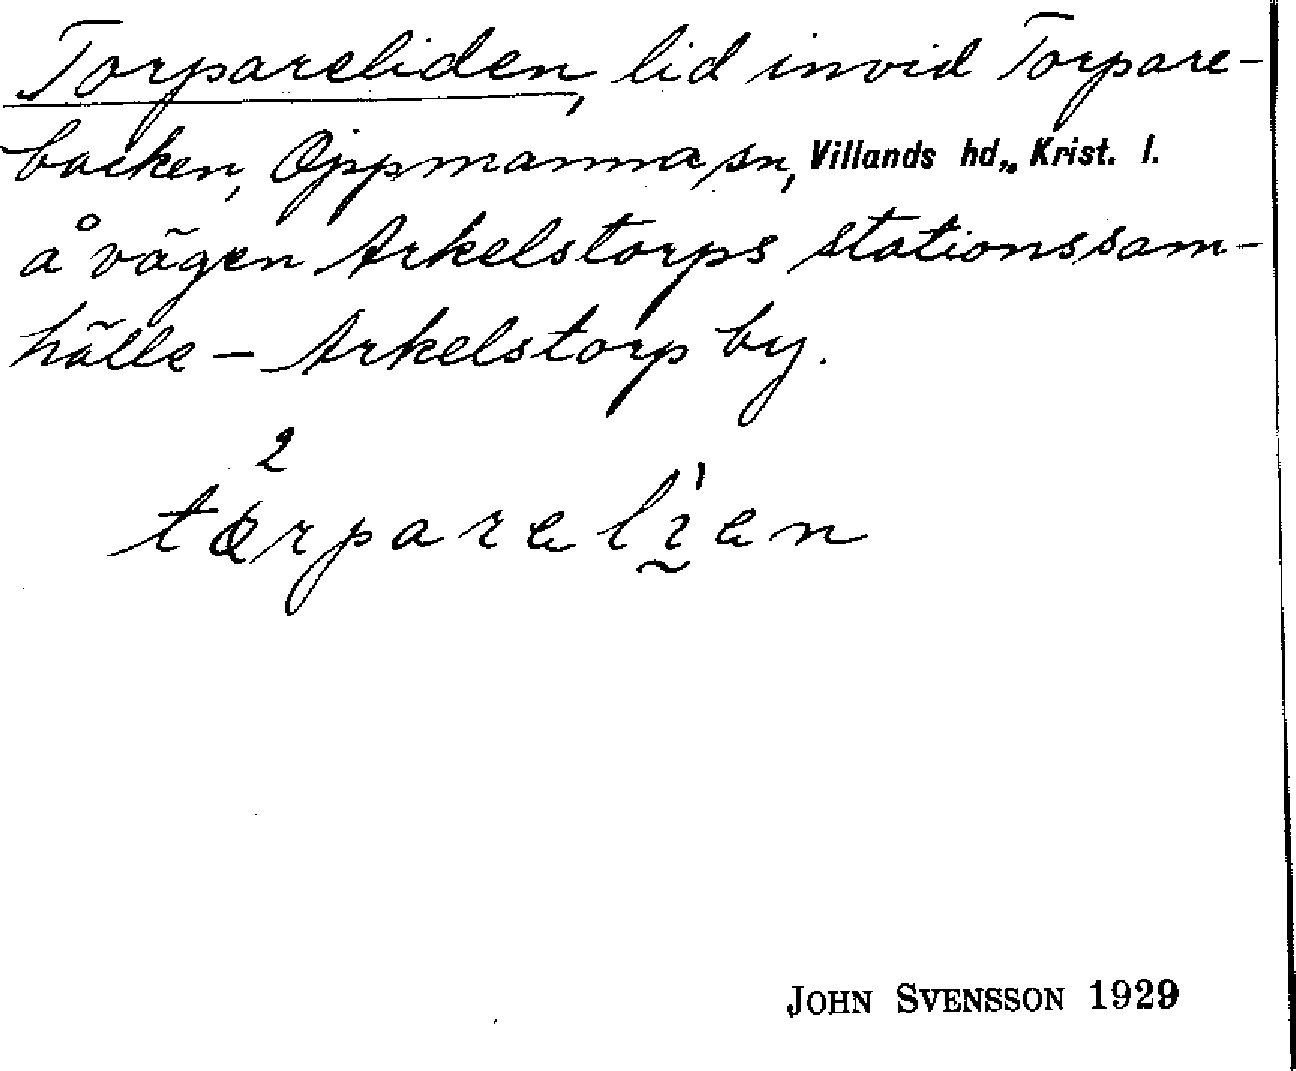 Torpareliden, lid invid Torpare-
backen, Oppmanna sn, Villands hd., Krist. l.
å vägen Arkelstorps stationssam-
hälle - Arkelstorp by.
JOHN SVENSSON 1929